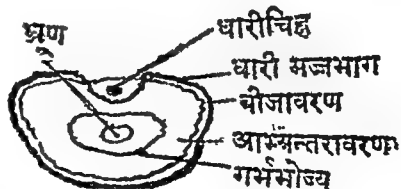 भ्रूण
धारीचिह्न
धारी मज्जभाग
बीजावरण
आभ्यन्तरावरण
गर्भभोज्य